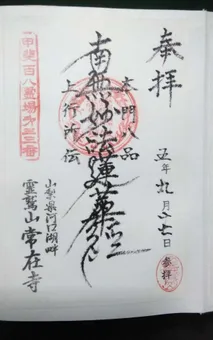 奉拝
五年九月十七日
参拝
本門八品
南無妙法蓮華経
上行所伝
甲斐百八霊場第三十二番
山梨県河口湖畔
霊鷲山常在寺